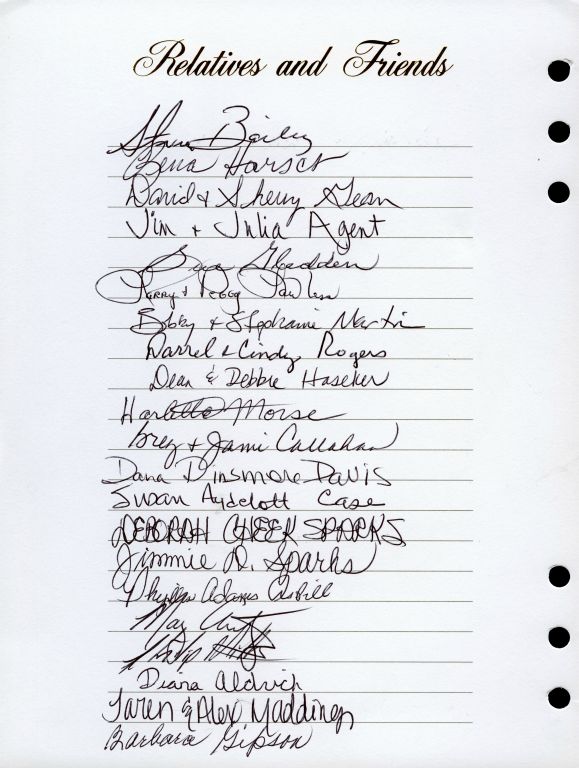 Relatives and Friends
Bailey
Harsch
David & Sherry
Jim & Julia Agent
Gladden
Larry & Peggy
Bobby & Stephanie Martin
Darrel & Cindy Rogers
Dean & Debbie Haseker
Morse
Greg & Jami Callahan
Dana Dinsmore Davis
Susan Aydelott Case
DEBORAH CHEEK SPARKS
Jimmie D. Sparks
Phyllis Adams
May
Diana Aldrich
Taren & Alex Maddings
Barbara Gipson